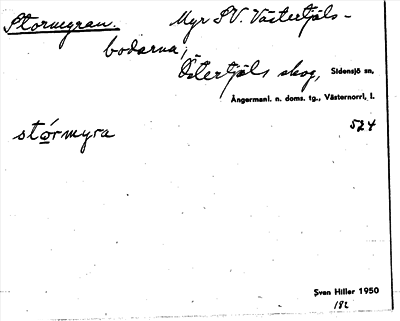 Stormyran. Myr SV. Västertjäls-
bodarna,
Östertjäls skog, Sidensjö sn,
Ångermanl. n. doms. tg., Västernorrl. l.
stórmyra 524
Sven Hiller 1950
182